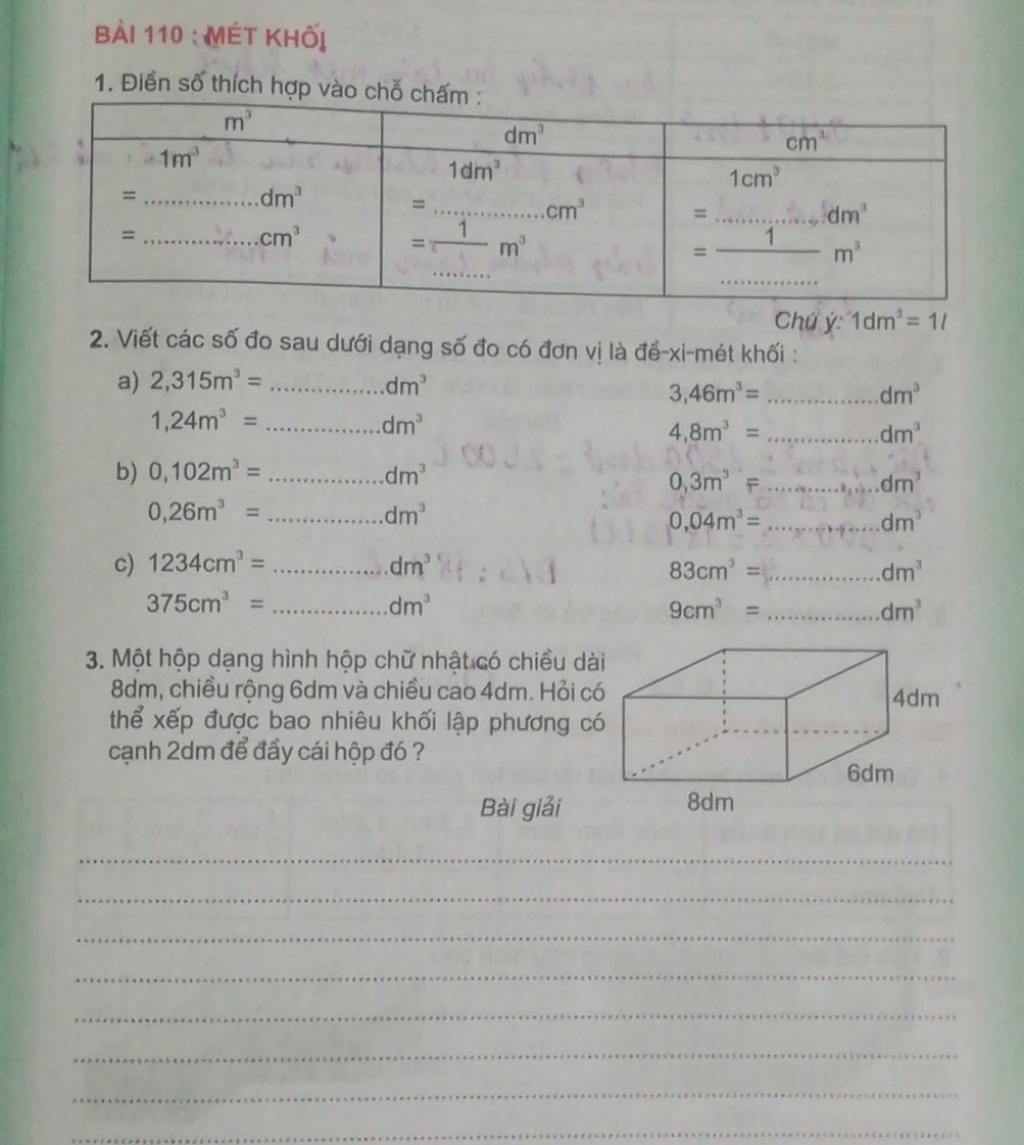 BÀI 110 : MÉT KHỐI
1. Điền số thích hợp vào chỗ chấm :
m³ dm³ cm³
1m³ 1dm³ 1cm³
= .................dm³ = .................cm³ = .................dm³
= .................cm³ = 1/......... m³ = 1/............... m³
Chú ý: 1dm³ = 1l
2. Viết các số đo sau dưới dạng số đo có đơn vị là đề-xi-mét khối :
a) 2,315m³ = .................dm³ 3,46m³ = .................dm³
1,24m³ = .................dm³ 4,8m³ = .................dm³
b) 0,102m³ = .................dm³ 0,3m³ = .................dm³
0,26m³ = .................dm³ 0,04m³ = .................dm³
c) 1234cm³ = .................dm³ 83cm³ = .................dm³
375cm³ = .................dm³ 9cm³ = .................dm³
3. Một hộp dạng hình hộp chữ nhật có chiều dài
8dm, chiều rộng 6dm và chiều cao 4dm. Hỏi có
thể xếp được bao nhiêu khối lập phương có
cạnh 2dm để đầy cái hộp đó ?
4dm
6dm
8dm
Bài giải